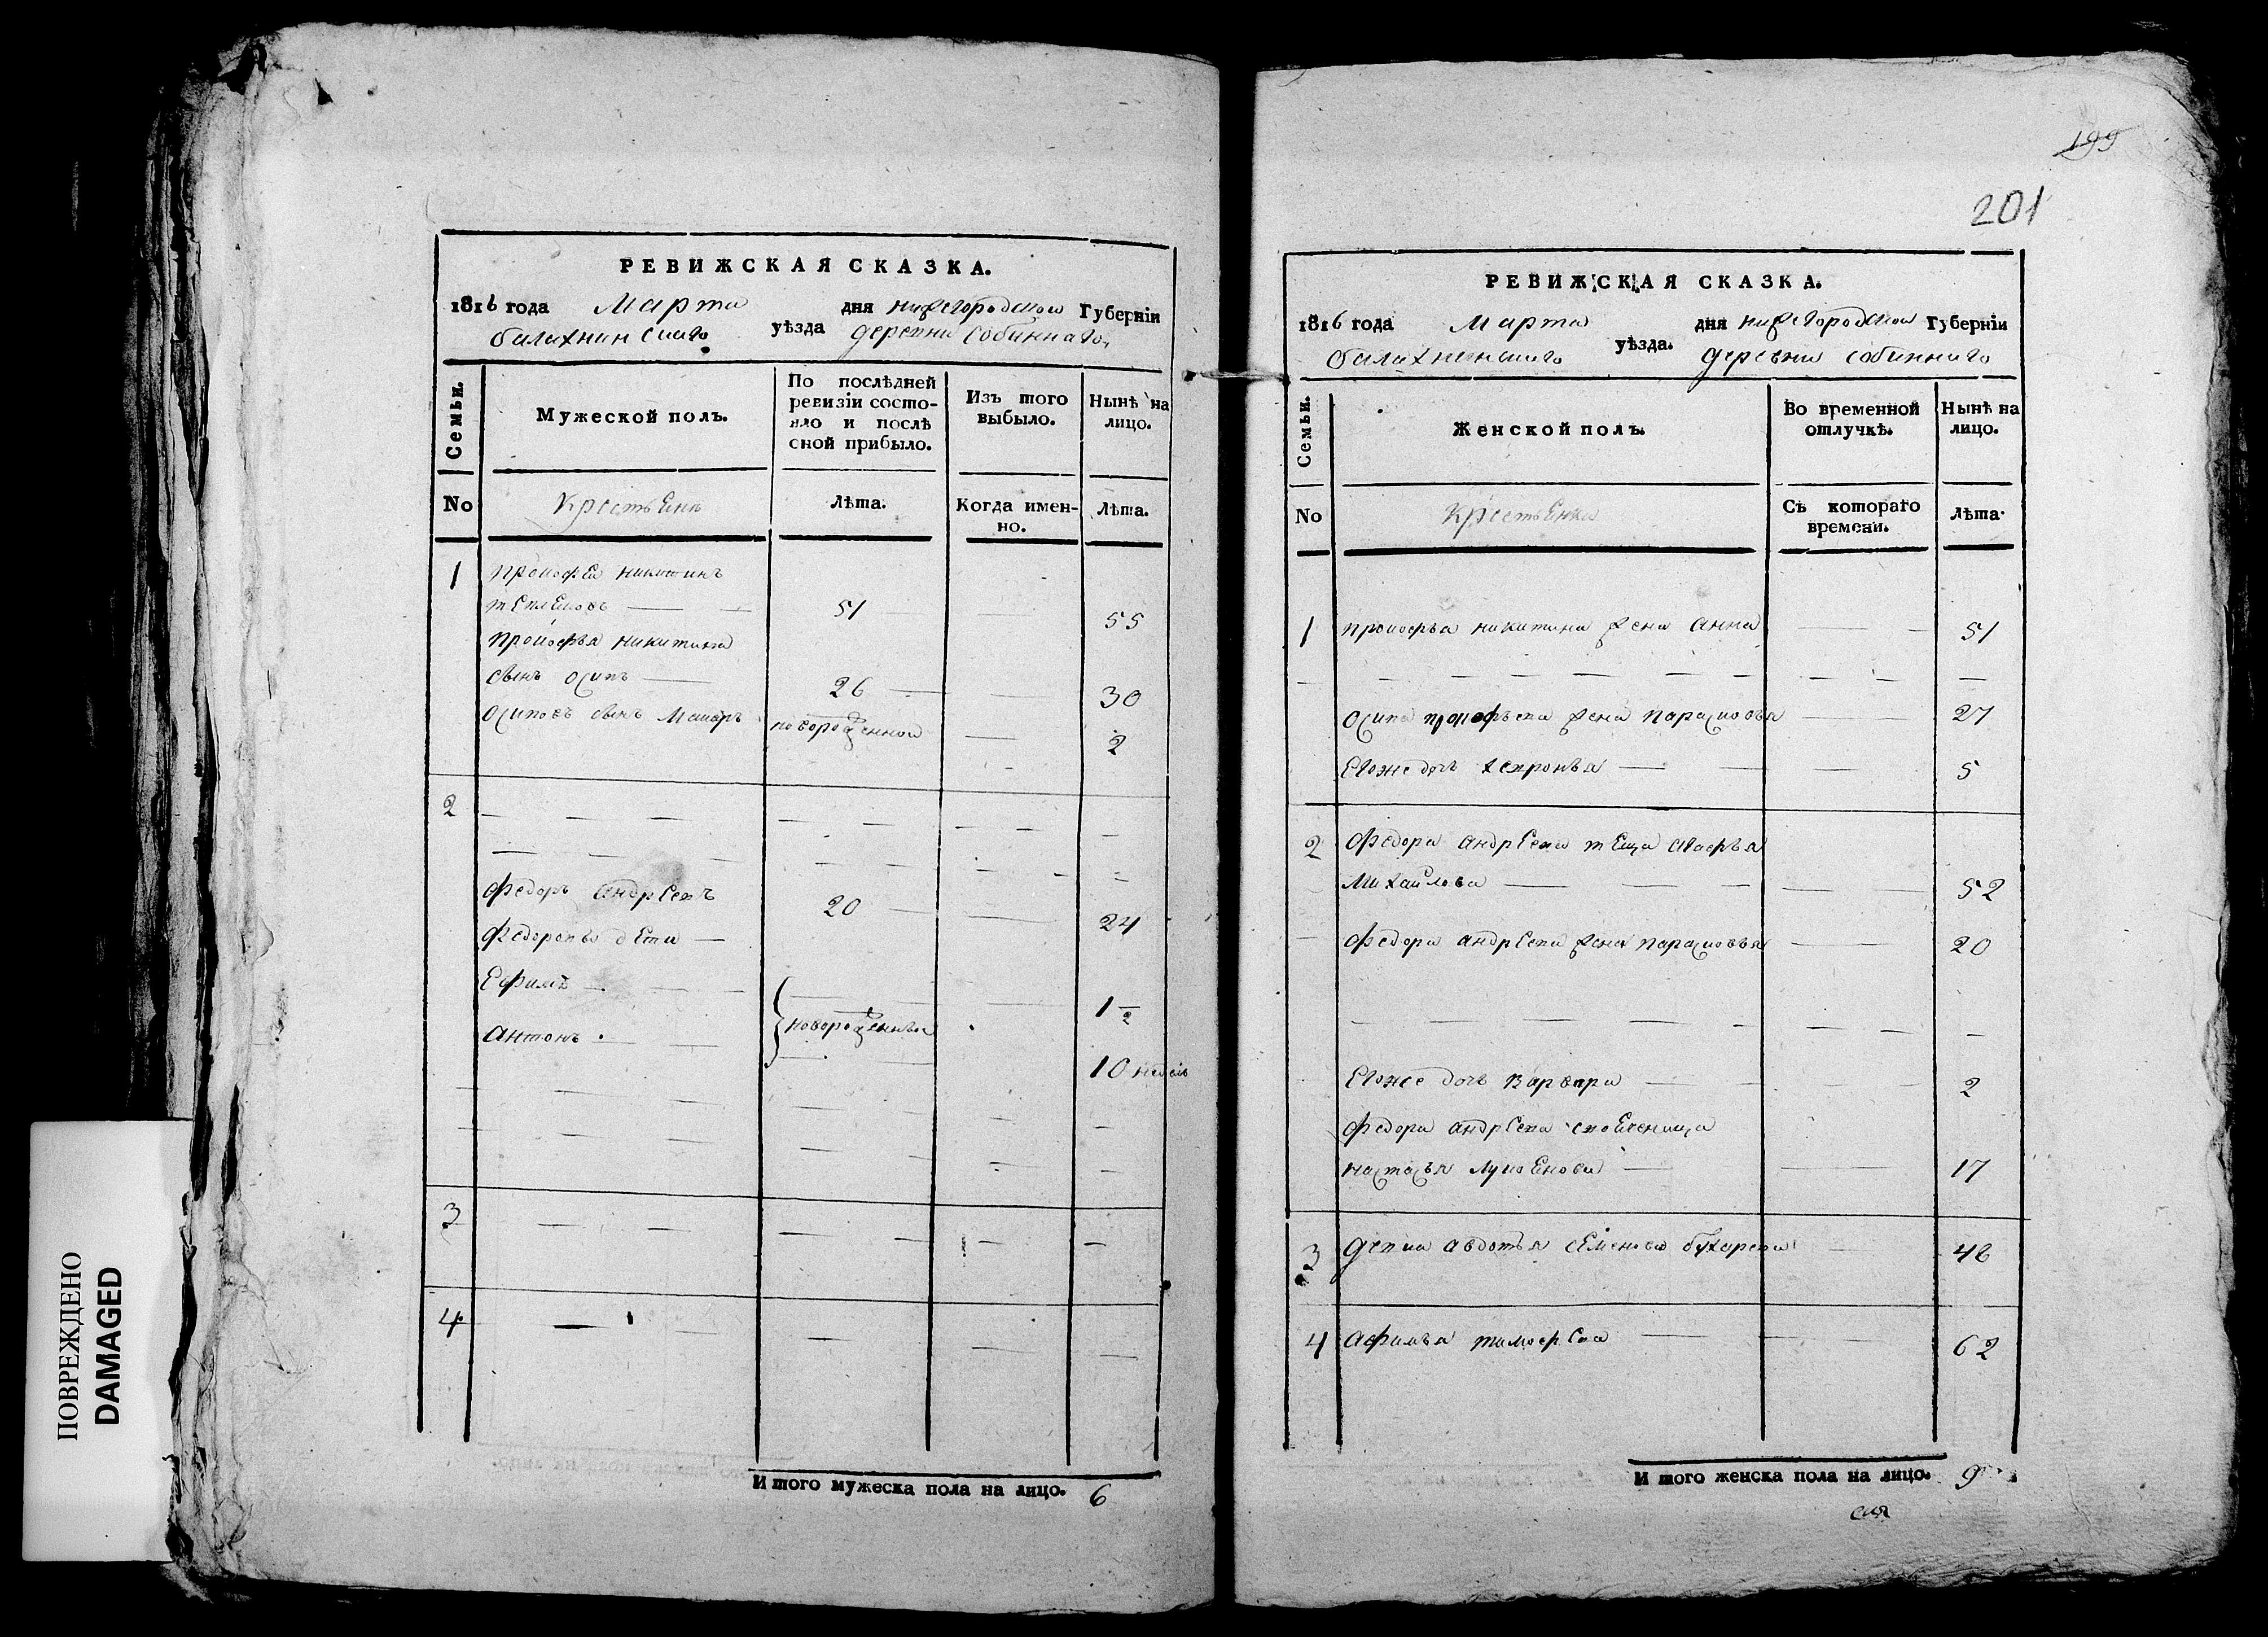 РЕВИЖСКАЯ СКАЗКА.
1816 года Марта дня нижегородской Губерніи
балахнинскаго уѣзда деревни собиннаго
Семьи.
Мужеской полъ.
По послѣдней ревизіи состояло и послѣ оной прибыло.
Изъ того выбыло.
Нынѣ на лицо.
No
Крестьенъ
Лѣта.
Когда именно.
Лѣта.
1 прокофеи никитинъ
51 55
прокофья никитина
сынъ осипъ 26 30
осиповъ сынъ новорожденнои 2
2
федоръ андреевъ 20 24
федоровы дети
Ефимъ 1 1/2
новорожденныя
антонъ 10 недель
3
4
И того мужеска пола на лицо. 6
199
201
РЕВИЖСКАЯ СКАЗКА.
1816 года Марта дня нижегородской Губерніи
балахнинскаго уѣзда. деревни собиннаго
Семьи.
Женской полъ.
Во временной отлучкѣ.
Нынѣ на лицо.
No
Съ котораго времени.
Лѣта.
1 прокофья никитина жена анна 51
осипа прокофьева жена парасковья 27
Егоже дочь хевронья 5
2 федора андреева теща агафья
Михайлова 52
федора андреева жена парасковья 20
Егоже дочь варвара 2
федора андреева своеченица
настасья лукоянова 17
3 девка авдотья семенова 46
4 афимья тимофеева 62
И того женска пола на лицо. 9
ПОВРЕЖДЕНО
DAMAGED